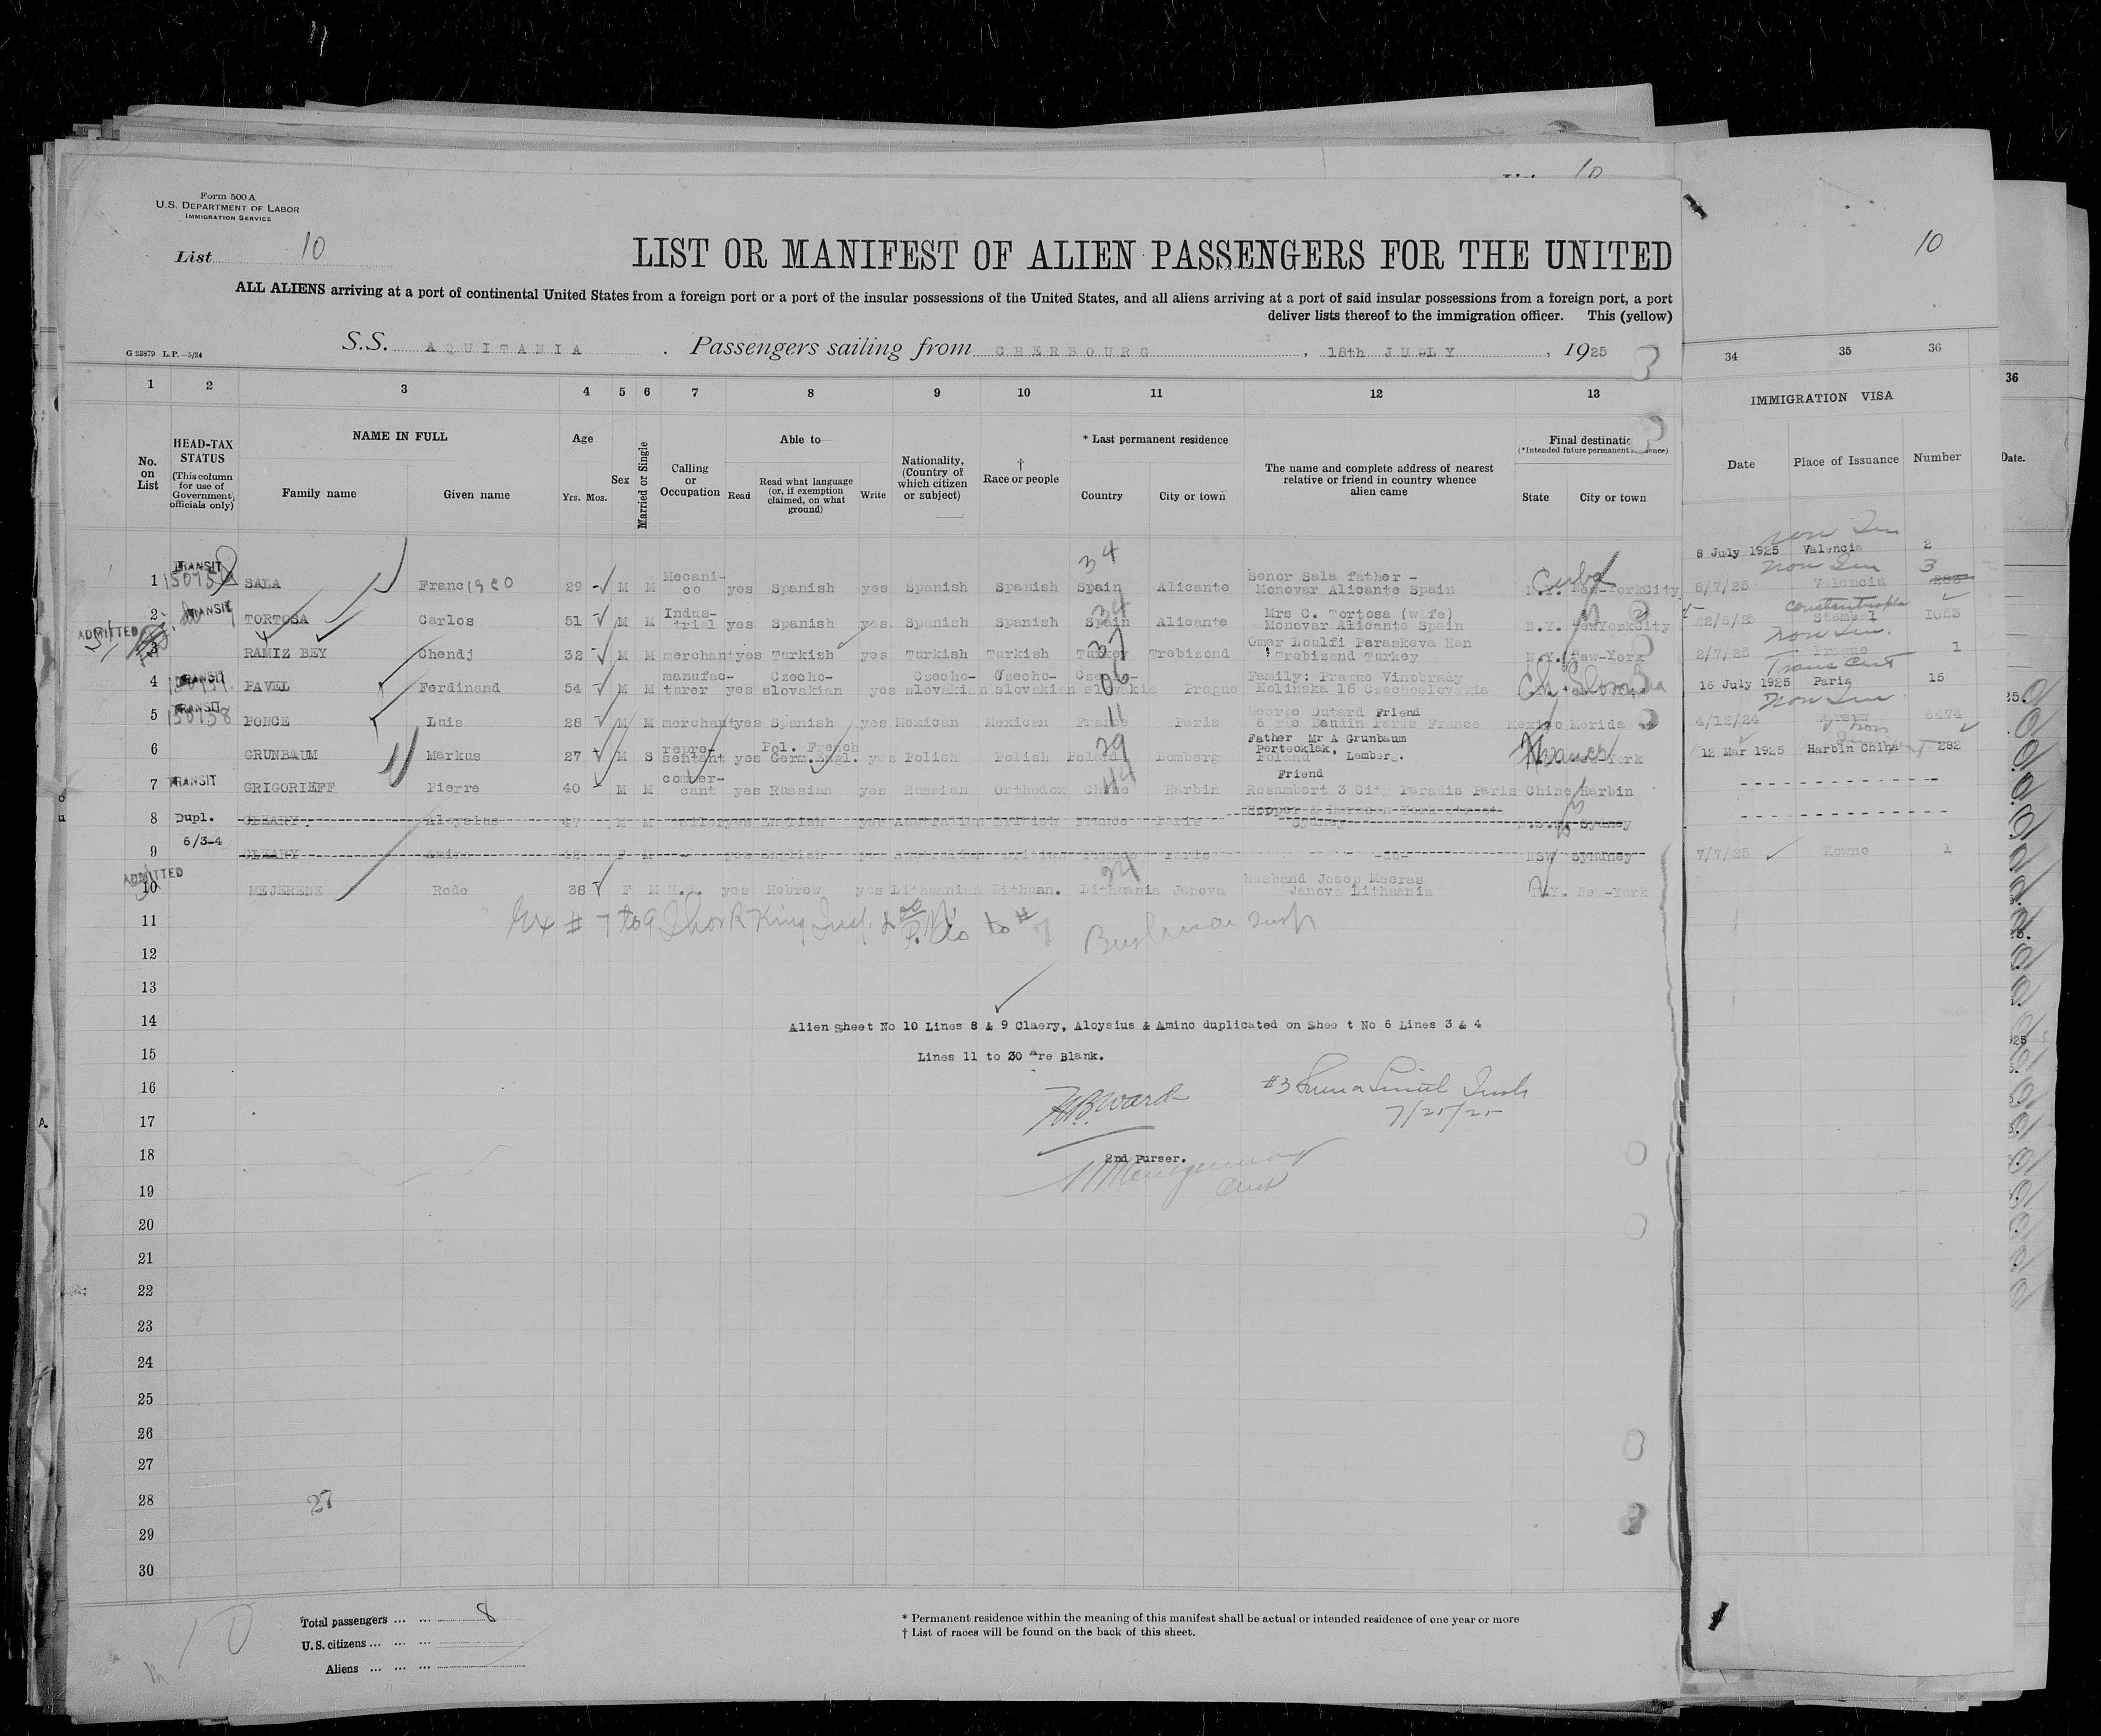 10
Form 500 A
U.S. DEPARTMENT OF LABOR
IMMIGRATION SERVICE
List 10
10
LIST OR MANIFEST OF ALIEN PASSENGERS FOR THE UNITED
ALL ALIENS arriving at a port of continental United States from a foreign port or a port of the insular possessions of the United States, and all aliens arriving at a port of said insular possessions from a foreign port, a port
deliver lists thereof to the immigration officer. This (yellow)
G 23879 L.P.—5/24
S.S. AQUITANIA . Passengers sailing from CHERBOURG , 18th JULY , 1925
1 2 3 4 5 6 7 8 9 10 11 12 13 34 35 36 36
IMMIGRATION VISA
No. on List
HEAD-TAX STATUS (This column for use of Government officials only)
NAME IN FULL
Family name Given name
Age
Yrs. Mos.
Sex
Married or Single
Calling or Occupation
Able to
Read Read what language (or, if exemption claimed, on what ground) Write
Nationality. (Country of which citizen or subject)
† Race or people
* Last permanent residence
Country City or town
The name and complete address of nearest relative or friend in country whence alien came
Final destination
(*Intended future permanent residence)
State City or town
Date Place of Issuance Number Date.
8 July 1925 Valencia 2
1 TRANSIT SALA Francisco 29 M M Mecanico yes Spanish yes Spanish Spanish 34 Spain Alicante Senor Sala father - Monovar Alicante Spain Cuba N.Y. New-York City 8/7/25 Valencia 3
2 TRANSIT TORTOSA Carlos 51 M M Industrial yes Spanish yes. Spanish Spanish 34 Spain Alicante Mrs C. Tortosa (wife) Monovar Alicante Spain N.Y. NewYorkCity 22/6/25 Constantinople Stamboul 1053
ADMITTED 3 RAMIZ BEY Chendj 32 M M merchant yes Turkish yes Turkish Turkish 37 Turkey Trebizond Omer Loulfi Paraskeva Han Trebizond Turkey N.Y. New-York 2/7/25 Prague 1
4 TRANSIT PAVEL Ferdinand 54 M M manufacturer yes Czecho-slovakian yes Czecho-slovakian Czecho-slovakian 06 Prague Family: Prague Vinobrady Kolinska 18 Czechoslovakia 16 July 1925 Paris 15
5 TRANSIT 150758 PONCE Luis 28 M M merchant yes Spanish yes Mexican Mexican 11 France Paris George Dutard Friend 6 rue Baudin Paris France Mexico Merida 4/12/24 Warsaw 6474
6 GRUNBAUM Markus 27 M S representant yes Pol. French Germ. Engl. yes Polish Polish Poland Lemberg Father Mr A Grunbaum Perteoklak, Lemberg. Poland France 12 Mar 1925 Harbin China 282
7 TRANSIT GRIGORIEFF Pierre 40 M M commercant yes Russian yes Russian Orthodox 44 Chine Harbin Friend Rosambert 3 City Paradis Paris Chine Harbin
8 Dupl. CLEARY. Aloysius 47 M M yes English yes Australian British France Paris Sydney Sydney
9 6/3-4 CLEARY Amino F M - yes English yes Australian British France Paris -do- NSW Sydney 7/7/25 Kowno 1
ADMITTED 10 MEJERENE Rode 38 F M H.W. yes Hebrew yes Lithuanian Lithuan. 24 Lithuania Janova husband Josep Meeras Janova Lithuania N.Y. New-York
11
12
13
14 Alien Sheet No 10 Lines 8 & 9 Claery, Aloysius & Amino duplicated on Sheet No 6 Lines 3 & 4
15 Lines 11 to 30 are Blank.
16
H.B. Ward
17 7/25/25
18 2nd Purser.
19
20
21
22
23
24
25
26
27
28 27
29
30
10
Total passengers ... ... 8
U.S. citizens ... ... ...
Aliens ... ... ...
* Permanent residence within the meaning of this manifest shall be actual or intended residence of one year or more
† List of races will be found on the back of this sheet.